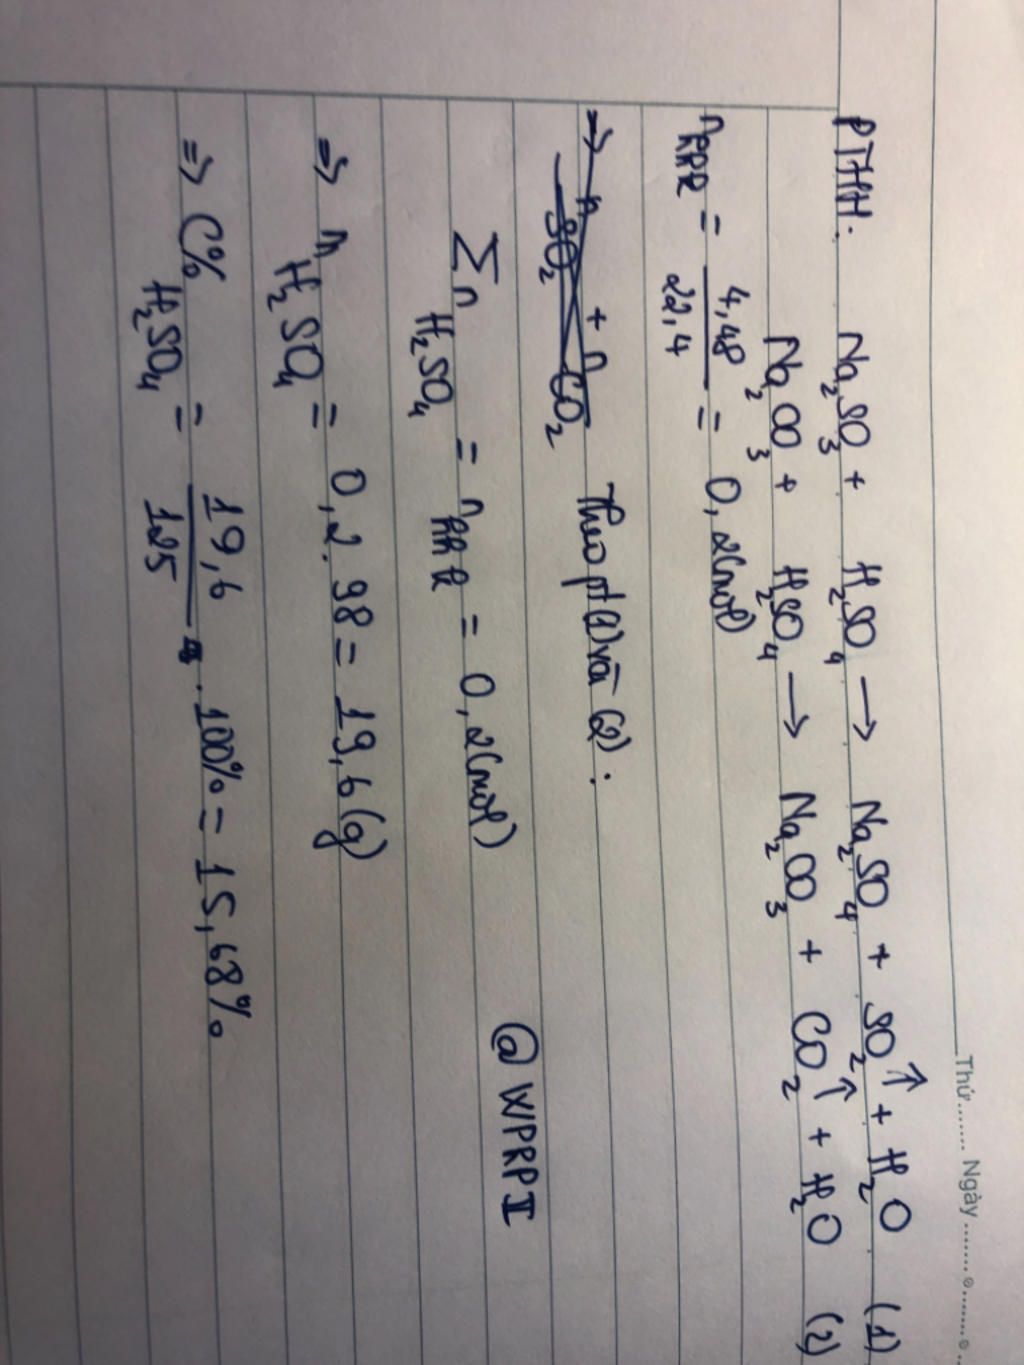 Thứ....... Ngày .............
PTHH: Na₂SO₃ + H₂SO₄ → Na₂SO₄ + SO₂↑ + H₂O (1)
Na₂CO₃ + H₂SO₄ → Na₂CO₃ + CO₂↑ + H₂O (2)
n = 4,48/22,4 = 0,2(mol)
Theo pt(1) và (2):
∑n H₂SO₄ = n = 0,2(mol)
@WPRPI
⇒ m H₂SO₄ = 0,2.98 = 19,6(g)
⇒ C% H₂SO₄ = 19,6/125 .100% = 15,68%